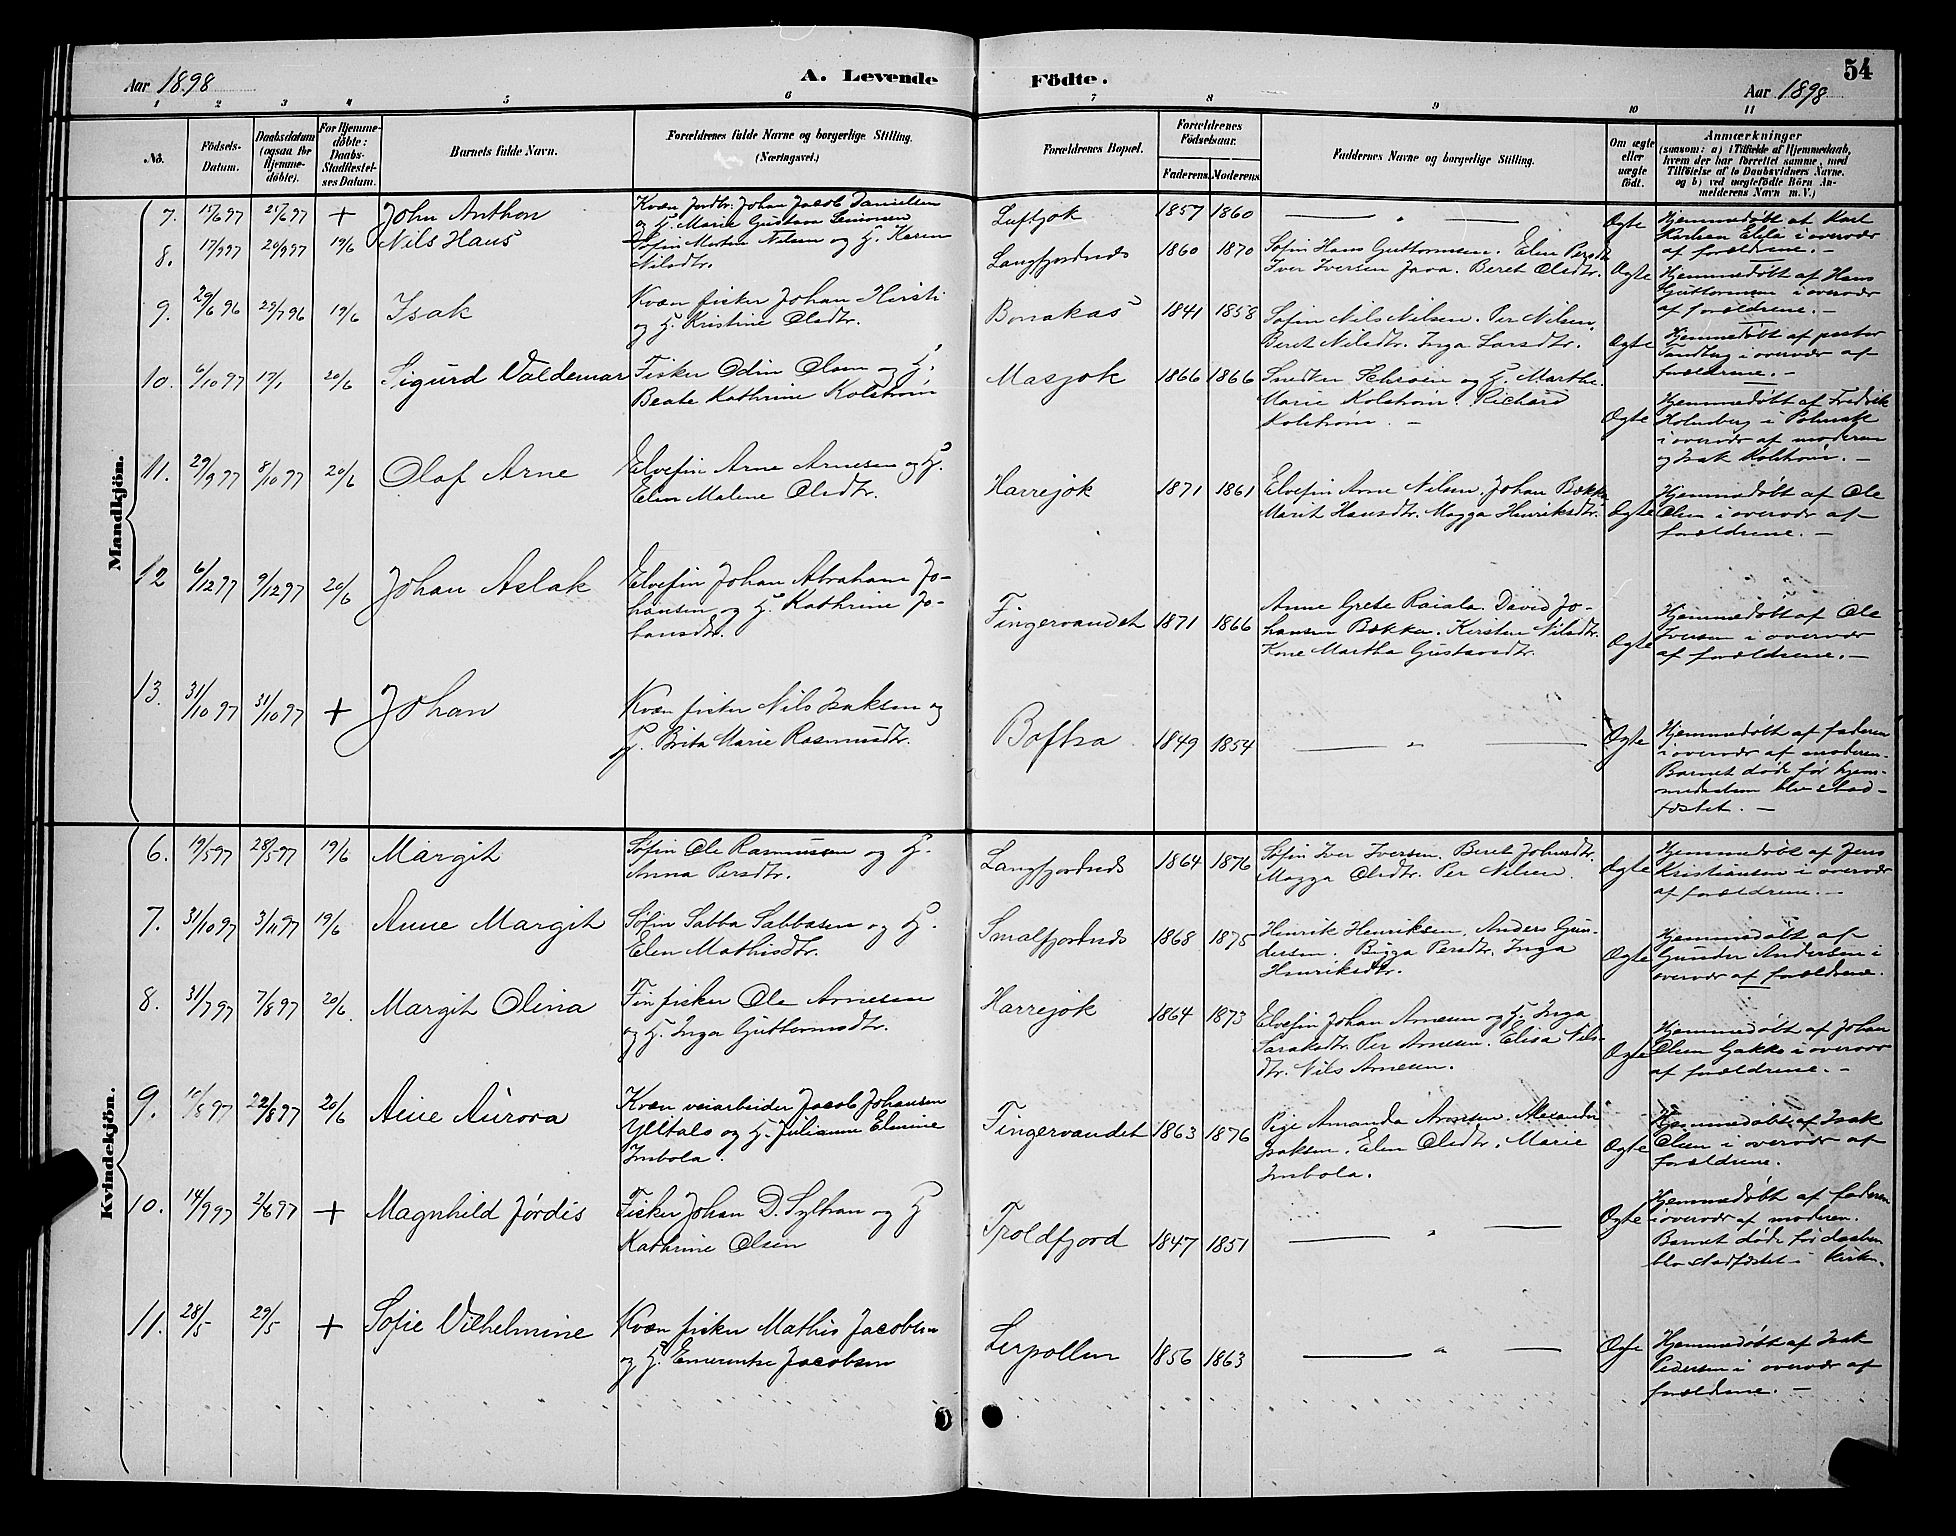 Aar 1898
A. Levende Födte.
54
Aar 1898
1 2 3 4 5 6 7 8 9 10 11
No.
Födsels-
Datum.
Daabsdatum
(ogsaa for
Hjemme-
döbte).
For Hjemme-
döbte:
Daabs-
Stadfæstel-
ses Datum.
Barnets fulde Navn.
Forældrenes fulde Navne og borgerlige Stilling.
(Næringsvei.)
Forældrenes Bopæl.
Forældrenes
Födselsaar.
Faderens. Moderens.
Faddernes Navne og borgerlige Stilling.
Om ægte
eller
uægte
født.
Anmærkninger
(saasom: a) i Tilfælde af Hjemmedaab,
hvem der har forrettet samme, med
Tilföielse af to Daabsvidners Navne.
og b) ved uægtefödte Börn An-
melderens Navn m. V.)
Mandkjön.
7. 21/6 97 + John Anthon
Kvæn Jordbr. Johan Jacob Danielsen
og H. Marie Gustava
Luftjok 1857 1860 — " — Ægte
Hjemmedøbt af Karl
Karlsen i overvær
af forældrene. —
8. 17/9 97 20/9 97 19/6 Nils Hans
Søfin Morten Nilsen og H. Karen
Nilsdtr.
Langfjordnes 1860 1870
Søfin Hans Guttormsen. Elen Persdtr
Iver Iversen Java. Beret Olsdtr. Ægte
Hjemmedøbt af Hans
Guttormsen i overvær
af forældrene. —
9. 29/6 96 29/7 96 19/6 Isak
Kvæn fisker Johan Hirsti
og H. Kristine Olsdtr.
Bonakas 1841 1858
Søfin Nils Nilsen. Per Nilsen,
Beret Nilsdtr. Inga Larsdtr. Ægte
Hjemmedøbt af pastor
Tandberg i overvær af
forældrene. —
10. 6/10 97 17/1 20/6 Sigurd Valdemar
Fisker Odin Olsen og H.
Beate Kathrine Kolstrøm
Masjok 1866 1866
Snedker og H. Marthe
Marie Kolstrøm. Richard
Kolstrøm. — Ægte
Hjemmedøbt af Fredrik
Holmberg i Polmak
i overvær af moderen
og Isak Kolstrøm. —
11. 29/9 97 8/10 97 20/6 Olaf Arne
Elvefin Arne Arnesen og H.
Elen Malene Olsdtr.
Harrejok 1871 1861
Elvefin Arne Nilsen. Johan Bække
Marit Hansdtr. Magga Henriksdtr. Ægte
Hjemmedøbt af Ole
Olsen i overvær af
forældrene. —
12 6/12 97 9/12 97 20/6 Johan Aslak
Elvefin Johan Abraham Jo-
hansen og H. Kathrine Jo-
hansdtr.
Fingervandet 1871 1866
Anne Grete Raiala. David Jo-
hansen Bækker. Kirsten Nilsdtr.
Kone Martha Gustavsdtr. Ægte
Hjemmedøbt af Ole
Iversen i overvær
af forældrene. —
13. 31/10 97 31/10 97 + Johan
Kvæn fisker Nils Isaksen og
H. Brita Marie Rasmusdtr.
Boftsa 1849 1854 — " — Ægte
Hjemmedøbt af faderen
i overvær af moderen.
Barnet døde før hjem-
medaaben blev stad-
fæstet. —
Kvindekjön.
6. 19/5 97 28/5 97 19/6 Margit
Søfin Ole Rasmussen og H.
Anna Persdtr.
Langfjordnes 1864 1876
Søfin Iver Iversen. Beret Johnsdtr.
Magga Olsdtr. Per Nilsen. Ægte
Hjemmedøbt af Jens
Kristiansen i overvær
af forældrene. —
7. 31/10 97 3/11 97 19/6 Anne Margit
Søfin Sabba Sabbasen og H.
Elen Mathisdtr.
Smalfjordnes 1868 1875
Henrik Henriksen. Anders Gun-
dersen. Bigga Persdtr. Inga
Henriksdtr. Ægte
Hjemmedøbt af
Gunder Andersen i
overvær af forældrene.
8. 31/7 97 7/8 97 20/6 Margit Olina
Finfisker Ole Arnesen
og H. Inga Guttormsdtr.
Harrejok 1864 1873
Elvefin Johan Arnesen og H. Inga
Saraksdtr. Per Arnesen. Elisa Nils-
dtr. Nils Arnesen. Ægte
Hjemmedøbt af Johan
Olsen Gakko i overvær
af forældrene. —
9. 10/8 97 22/8 97 20/6 Aine Aurora
Kvæn veiarbeider Jacob Johansen
Ylitalo og H. Julianne Elmine
Imbola.
Fingervandet 1863 1876
Pige Amanda Arnesen. Alexander
Isaksen. Elen Olsdtr. Marie
Imbola. Ægte
Hjemmedøbt af Isak
Olsen i overvær af
forældrene.
10. 14/9 97 2/6 97 + Magnhild Jørdis
Fisker Johan D. Sylhan og H
Kathrine Olsen
Troldfjord 1847 1851 — " — Ægte
Hjemmedøbt af faderen
i overvær af moderen.
Barnet døde før daaben
blev stadfæstet i kirken.
11. 28/5 29/5 + Sofie Vilhelmine
Kvæn fisker Mathis Jacobsen
og H. Emerentse Jacobsen
Lerpollen 1856 1863 — " — Ægte
Hjemmedøbt af Isak
Pedersen i overvær af
forældrene. —